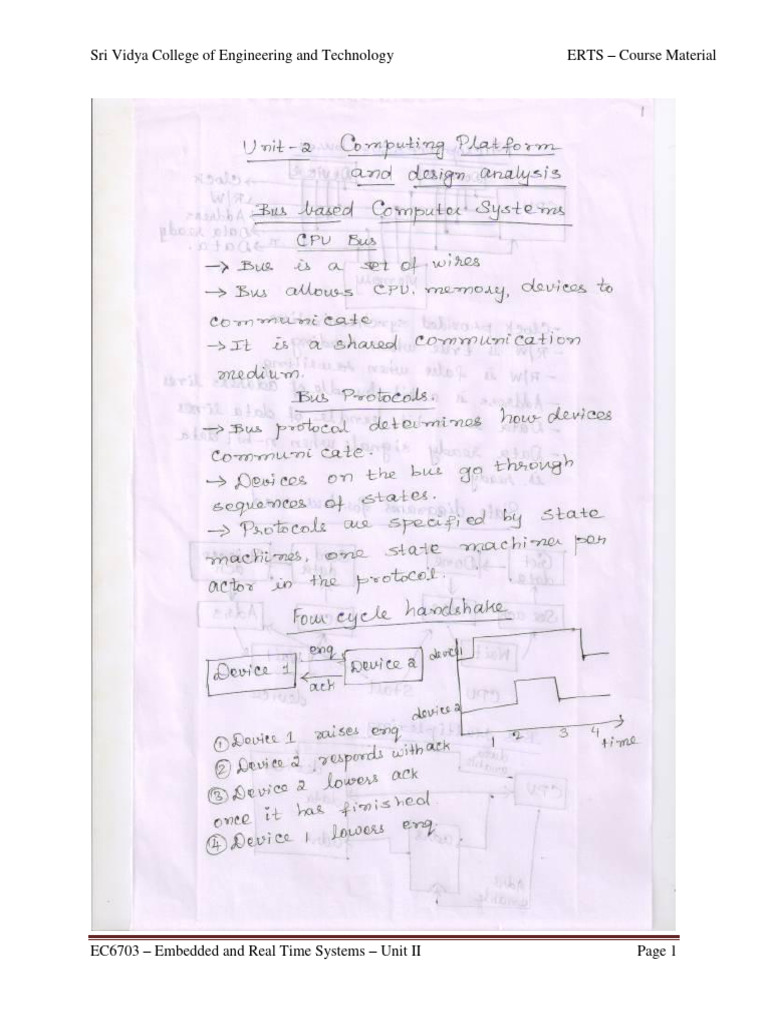 Sri Vidya College of Engineering and Technology ERTS – Course Material
1
Unit-2 Computing Platform
and design analysis
Bus based Computer Systems
CPU Bus
→ Bus is a set of wires
→ Bus allows CPU, memory, devices to
communicate
→ It is a shared communication
medium.
Bus Protocols.
→ Bus protocol determines how devices
communicate.
→ Devices on the bus go through
sequences of states.
→ Protocols are specified by state
machines, one state machine per
actor in the protocol.
Four cycle handshake
Device 1 enq ack Device 2
device 1
device 2
1 2 3 4 time
① Device 1 raises enq
② Device 2 responds with ack
③ Device 2 lowers ack
once it has finished
④ Device 1 lowers enq.
EC6703 – Embedded and Real Time Systems – Unit II Page 1